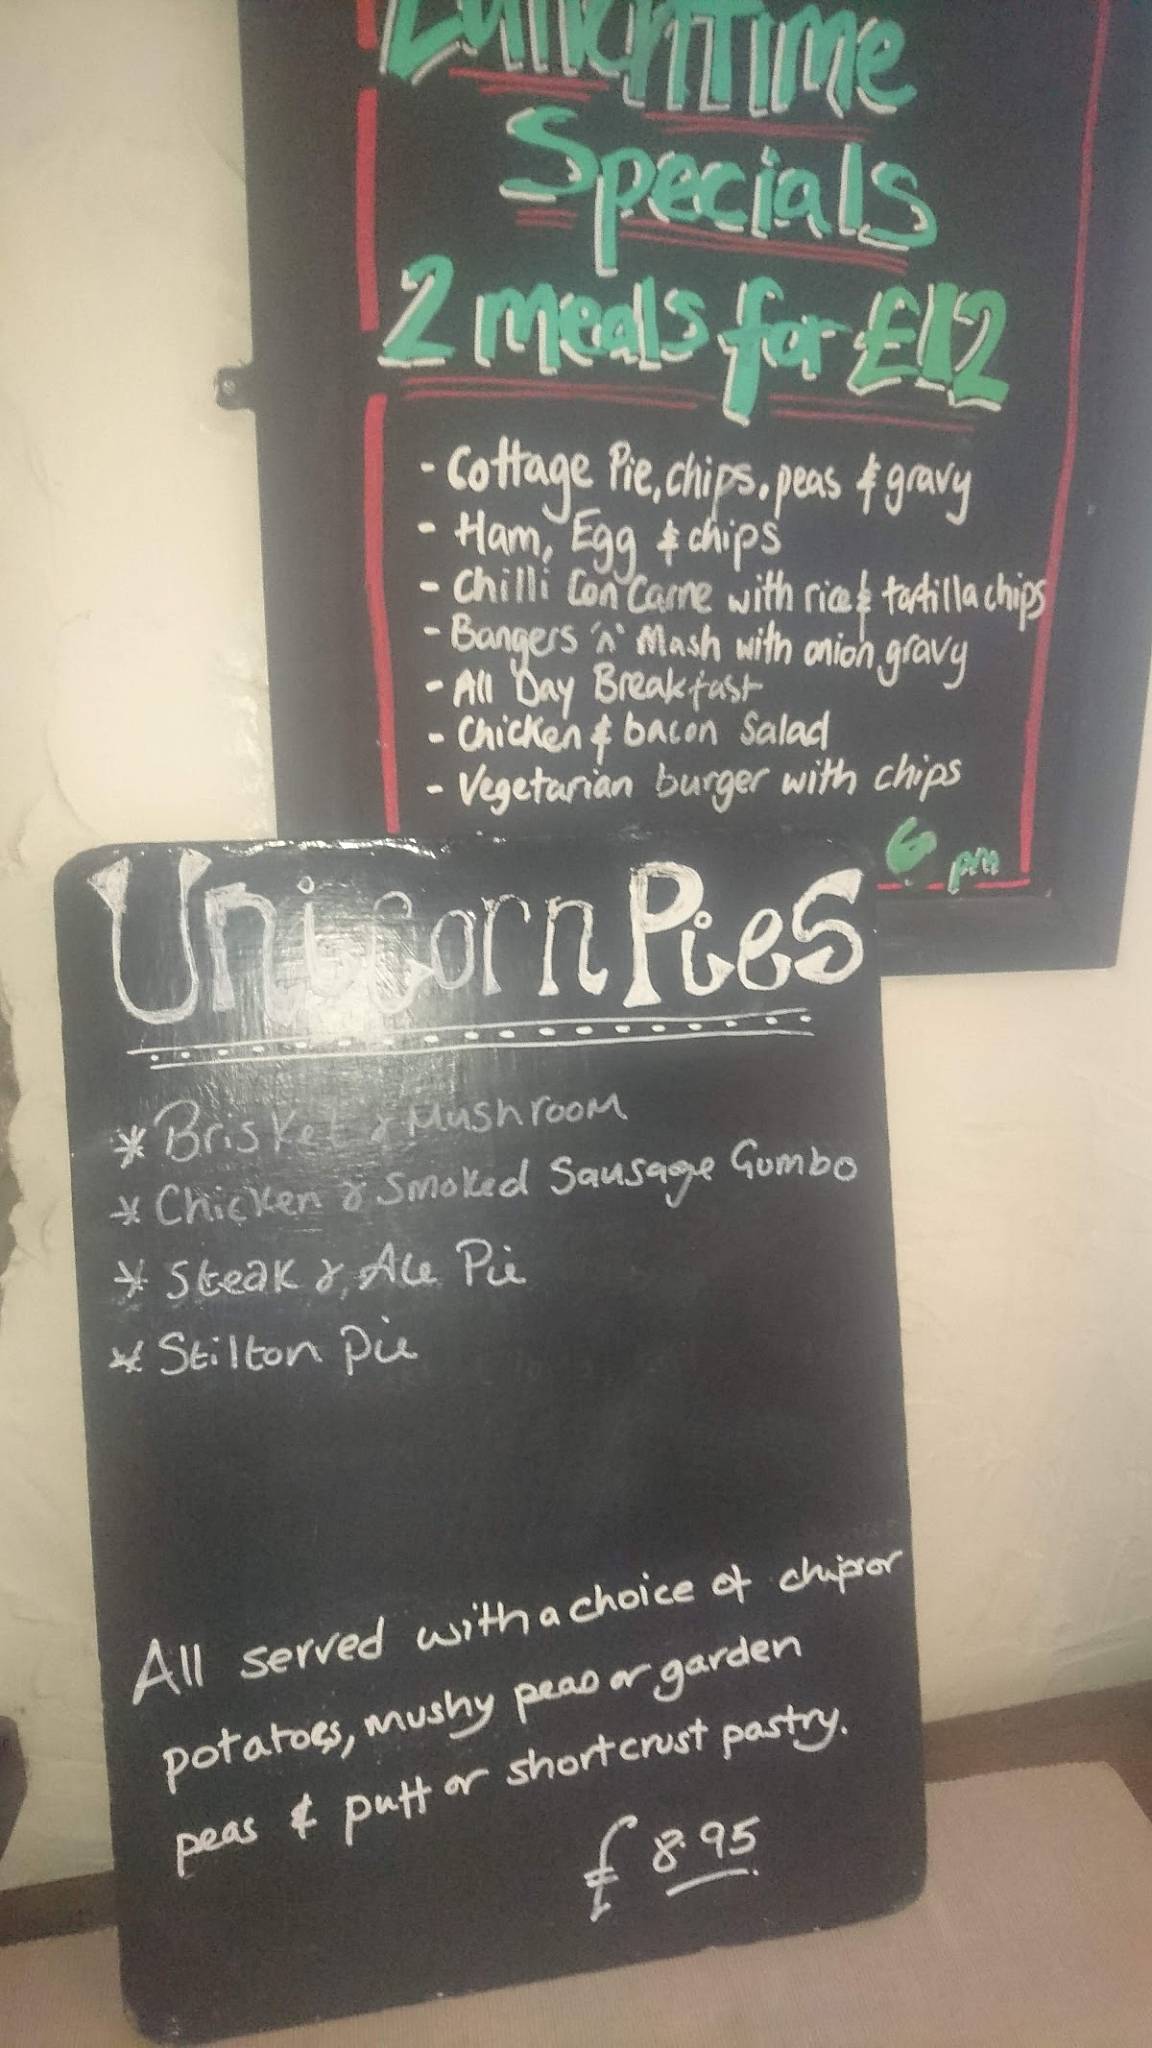 Lunchtime
Specials
2 meals for £12
- Cottage Pie, chips, peas & gravy
- Ham, Egg & chips
- Chilli Con Carne with rice & tortilla chips
- Bangers 'n' Mash with onion gravy
- All Day Breakfast
- Chicken & bacon Salad
- Vegetarian burger with chips
6 pm
Unicorn Pies
* Brisket & Mushroom
* Chicken & Smoked Sausage Gumbo
* Steak & Ale Pie
* Stilton Pie
All served with a choice of chips or
potatoes, mushy peas or garden
peas & puff or shortcrust pastry.
£8.95